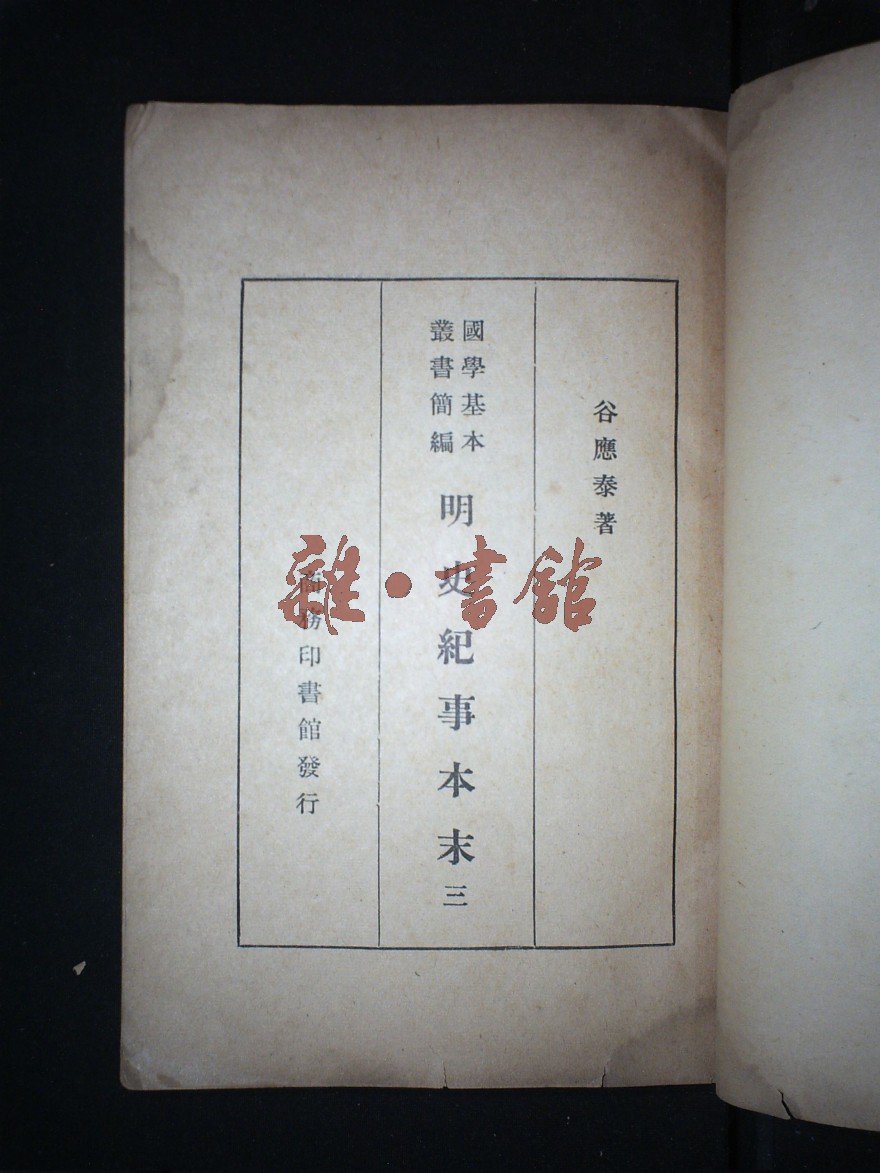 谷應泰著
國學基本
叢書簡編
明史紀事本末三
商務印書館發行
雜·書館